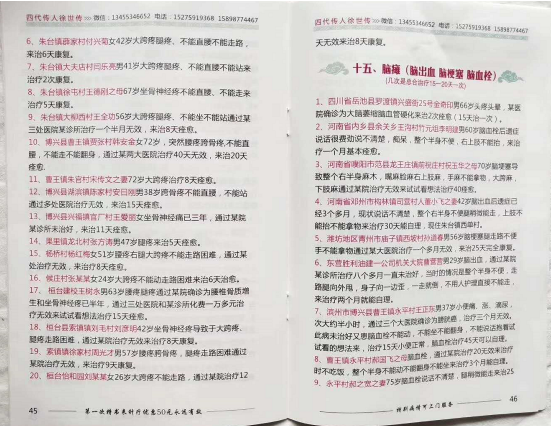 四代传人徐世传>>> 微信：13455346652 电话：15275919368 15898774467
6、朱台镇薛家村付兴菊女42岁大跨疼腿疼、不能直腰不能走路，
来治6天康复。
7、朱台镇大夫店村闫乐亮男41岁大跨疼腿疼、不能直腰不能站来
治疗2次康复。
8、朱台镇徐屯村王德刚之母67岁坐骨神经疼不能直腰、不能走来
治疗5天康复。
9、朱台镇大柳西村王全功56岁大跨疼腿疼、不能坐不能站通过
三处医院某诊所治疗一个半月无效，来治8天痊愈。
10、博兴县曹王镇贾张村韩安金女72岁，突然腰疼跨骨疼，不能直
腰，不能走不能翻身，通过某两大医院治疗40天无效，来治20天
痊愈。
11、曹王镇朱官村宋传文之妻72岁大跨疼治疗8天痊愈。
12、博兴县湖滨镇陈家村安日刚男38岁跨骨疼不能直腰，不能站
通过多处医院治疗无效，来治15天痊愈。
13、博兴县兴福镇官厂村王爱丽女坐骨神经痛已三年，通过某院
某诊所未治好，来治11天痊愈。
14、果里镇龙北村张方涛男47岁腿疼来治5天痊愈。
15、杨桥村杨红梅女51岁腰疼右腿大跨疼不能走路困难，通过某
处治疗无效，来治疗8天痊愈。
16、候庄村张某某女24岁大跨疼不能动走路困难来治6天治愈。
17、桓台建校王树水男63岁腰疼腿疼通过某医院确诊为腰椎骨质增
生和坐骨神经疼已半年，通过三处医院和某诊所化费一万多元治
疗无效来试试看想法治疗15天痊愈。
18、桓台县索镇镇刘毛村刘彦明42岁坐骨神经疼致于大跨疼、
腿疼走路困难，通过某医院治疗无效来治疗8天康复。
19、索镇镇徐家村周光才男57岁腰疼跨骨疼，腿疼走路困难通过
某院治疗无效，来治疗9天康复。
20、桓台怡和园刘某某女26岁大跨疼不能走路，通过某院治疗12
45 第一次持书来针疗优惠50元永远有效
四代传人徐世传>>> 微信：13455346652 电话：15275919368 15898774467
天无效来治8天康复。
十五、脑瘫（脑出血 脑梗塞 脑血栓）
（几次是总仓治疗15—20天一次）
1、四川省岳池县罗渡镇兴盛街25号金奇印男66岁头疼头晕，某医
院确诊为大脑萎缩脑血管硬化来治2次痊愈（15天治一次）。
2、河南省内乡县余关乡王沟村竹元组李明建男60岁脑血栓后遗症
说话很费劲说不清楚，痴呆，整个半身不便，右上肢不能抬，来治
疗一个月基本痊愈。
3、河南省濮阳市范县龙王庄镇前祝庄村权玉华之母70岁脑梗塞导
致整个右半身麻木，嘴麻脸麻右上肢麻，手麻不能拿物，大跨麻，
下肢麻通过某院治疗无效来试试看想法治疗40痊愈。
4、河南省邓州市构林镇司营村人董小飞之妻42岁脑出血后遗症已
经3个多月，现状说话不清楚，整个右半身不便腿稍微能走，上肢不
能抬不能拿物来治疗30天能自理，现住朱台镇西单村。
5、潍坊地区青州市庙子镇西坡村孙道春男56岁脑梗塞腿走路不便
手不能拿物通过某大医院治疗一个多月无效，来治25天完全康复。
6、东营胜利油建一公司机关大院曹宣营男29岁脑出血，通过某院
某诊所治疗八个多月一直未治好，当时的情况是整个半身不便，走
路腿向外甩，身子向一边歪，一走就倒，不用人护理直接不能走，
来治疗两个月就能自理。
7、滨州市博兴县曹王镇永平村王正东男37岁小便痛、涨、滴尿，
次大约半小时，通过三个大医院确诊为膀胱癌，治疗三个月无效。
此病未治好又患脑血栓不能动，不能坐不能翻身，不能说话抱着试
试看的想法来，治疗15天小便正常，脑血栓治疗45天可以自理。
8、曹王镇永平村郝国飞之母脑血栓，通过某院治疗20天无效来治疗
时不吃饭，整个半身不能动不能翻身不能坐来治疗3个月能自理。
9、永平村郝之宽之妻75岁脑血栓说话不清楚，腿稍微能走来治25
特别病情可上门服务 46